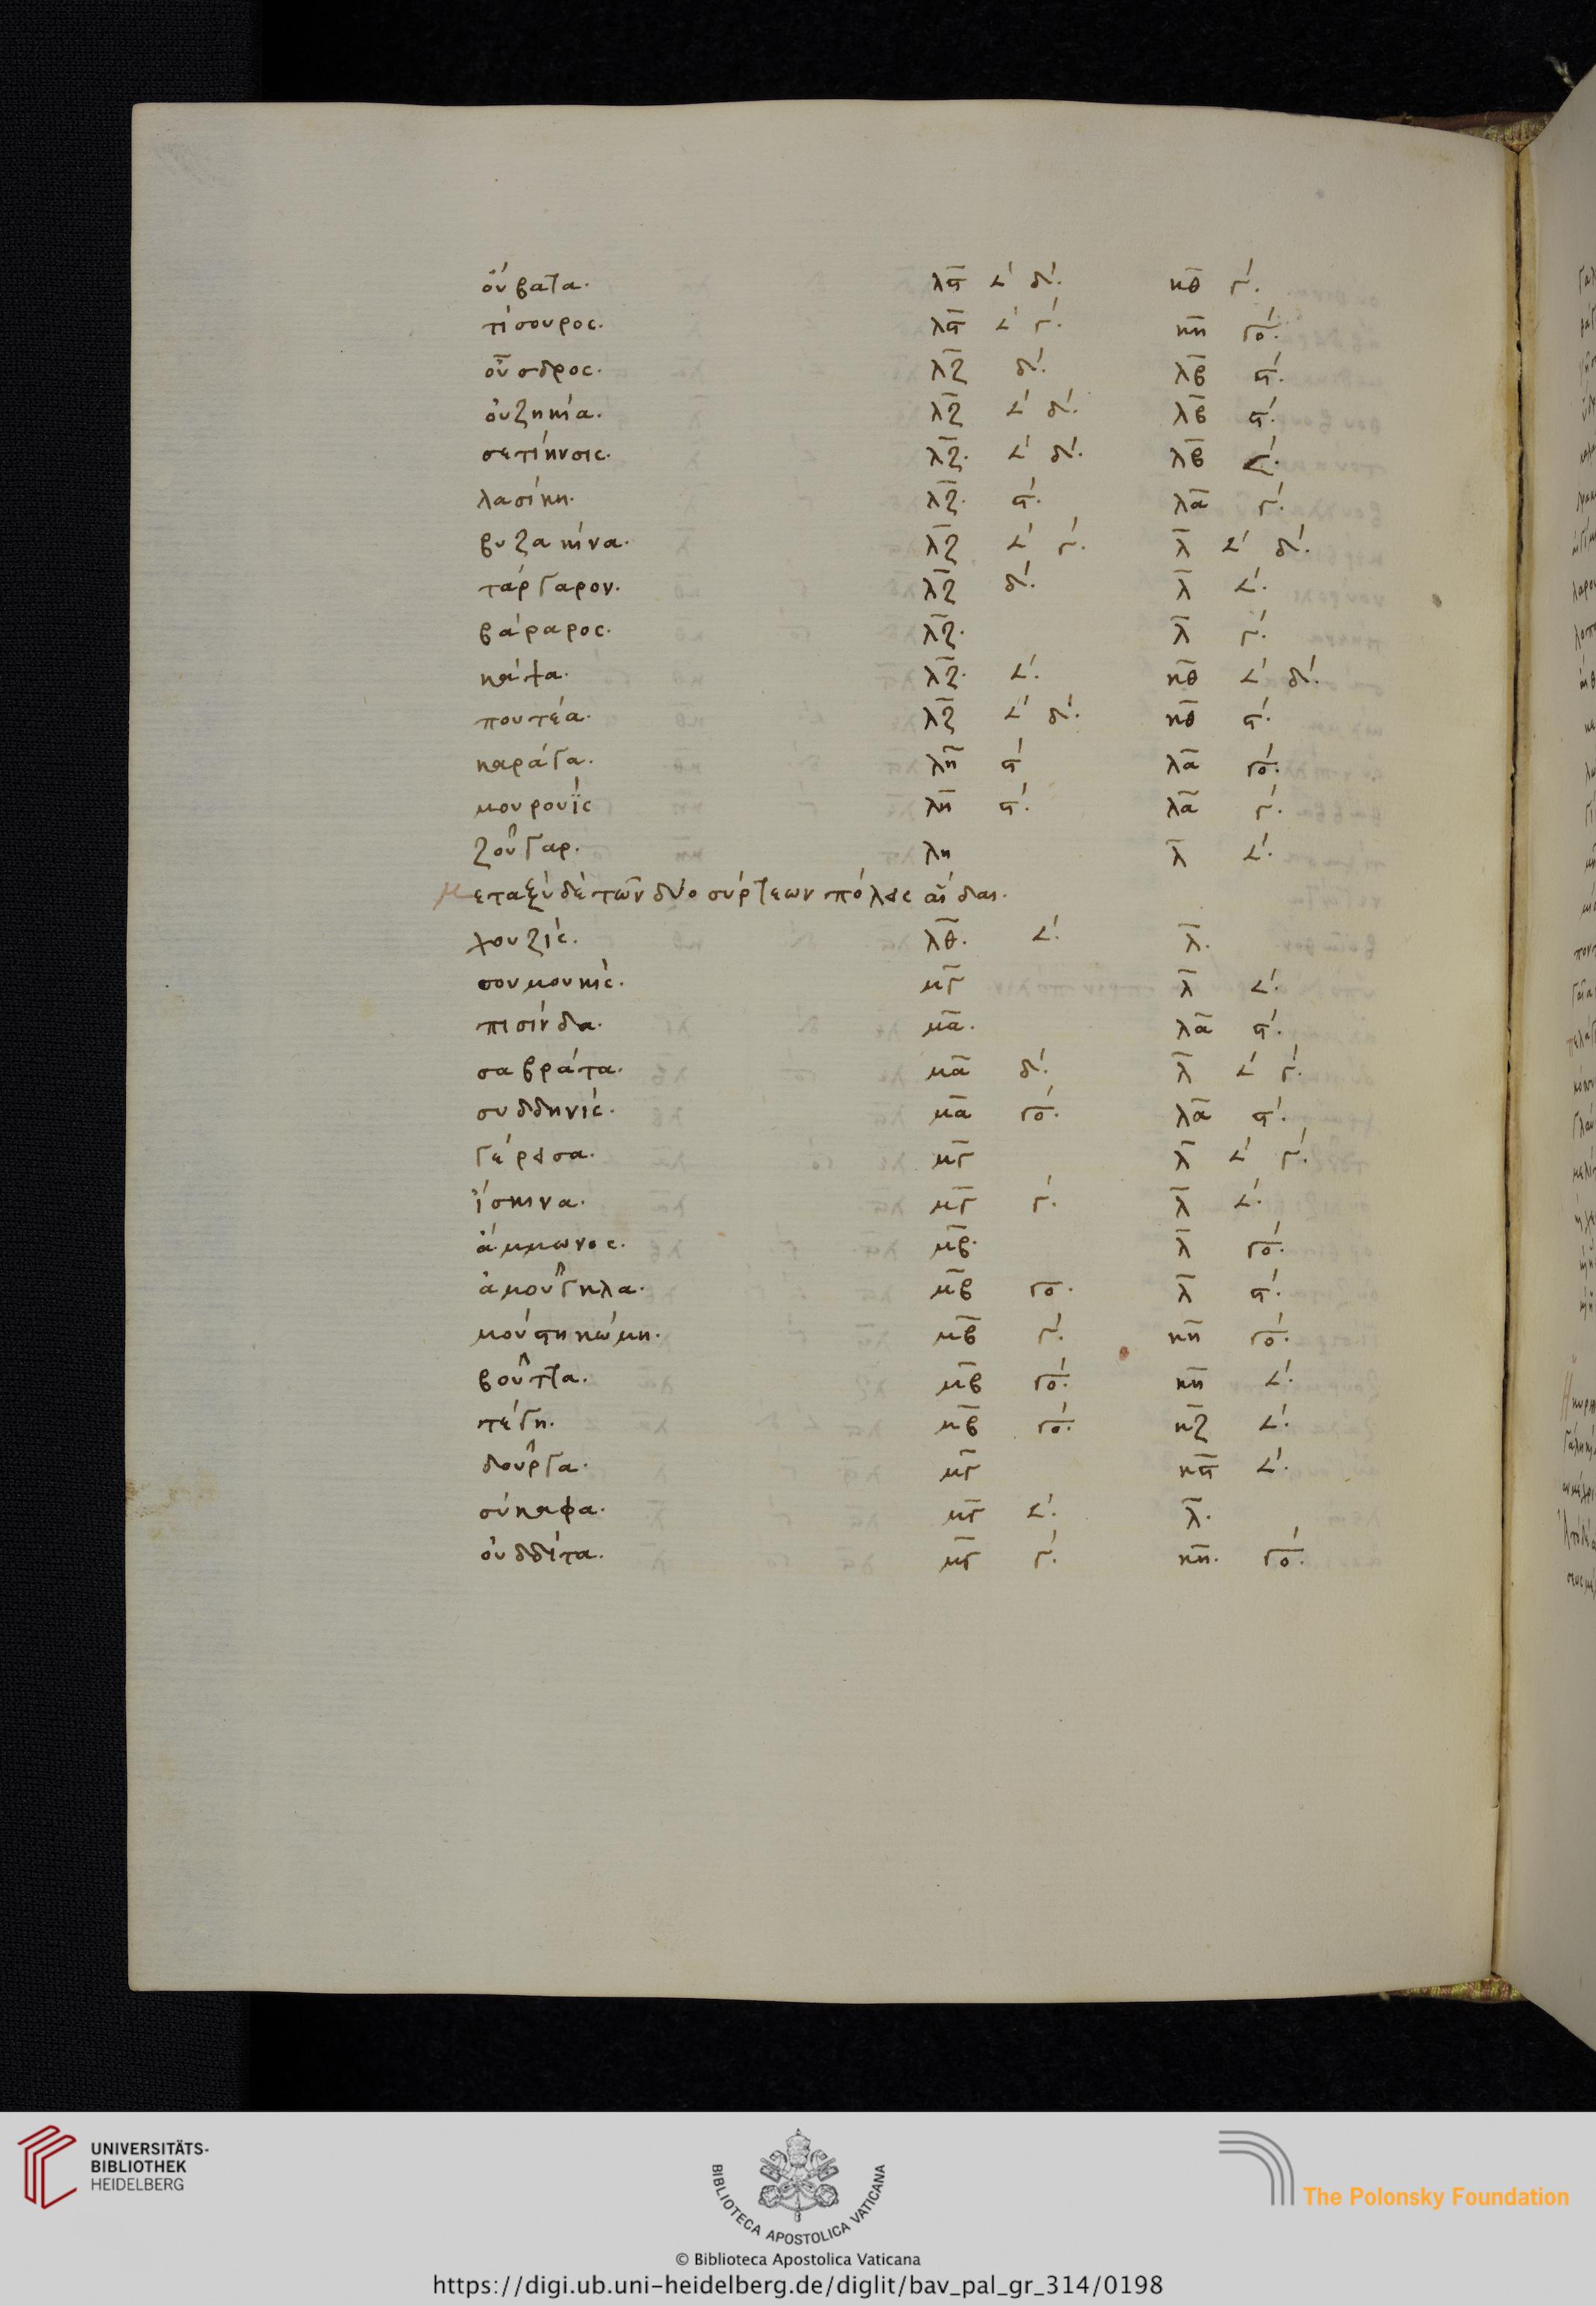 ούβατα. λϛ ∠ʹ δʹ. κθ γʹ.
τίσουρος. λϛ ∠ʹ γʹ. κη γοʹ.
οὔσδρος. λζ δʹ. λβ ϛʹ.
ὀυζηκία. λζ ∠ʹ δʹ. λβ ϛʹ.
σετίηνσις. λζ. ∠ʹ δʹ. λβ ∠ʹ.
λασίκη. λζ. ϛʹ. λα γʹ.
βυζακίνα. λζ ∠ʹ γʹ. λ ∠ʹ δʹ.
τάργαρον. λζ δʹ. λ ∠ʹ.
βάραρος. λζ. λ γʹ.
κάψα. λζ. ∠ʹ. κθ ∠ʹ δʹ.
πουτέα. λζ ∠ʹ δʹ. κθ ϛʹ.
καράγα. λη ϛʹ λα γοʹ.
μουρουΐς λη ϛʹ. λα γʹ.
ζοῦγαρ. λη λ ∠ʹ.
μεταξὺ δὲ τῶν δύο σύρτεων πόλεις αἵδαι.
χουζίς. λθ. ∠ʹ. λ.
σουμουκίς. μγ λ ∠ʹ.
πισίνδα. μα. λα ϛʹ.
σαβράτα. μα δʹ. λ ∠ʹ γʹ.
συδδηνίς. μα γοʹ. λα ϛʹ.
γέρεισα. μγ λ ∠ʹ γʹ.
ἴσκινα. μγ γʹ. λ ∠ʹ.
ἄμμωνος. μβ. λ γοʹ.
ἀμοῦγκλα. μβ γο. λ ϛʹ.
μούστη κώμη. μβ γʹ. κη γοʹ.
βοῦττα. μβ γοʹ. κη ∠ʹ.
τέγη. μβ γοʹ. κζ ∠ʹ.
δοῦργα. μγ κϛ ∠ʹ.
σύκαφα. μγ ∠ʹ. λ.
ὀυδδίτα. μγ γʹ. κη. γοʹ.
UNIVERSITÄTS-
BIBLIOTHEK
HEIDELBERG
BIBLIOTECA APOSTOLICA VATICANA
The Polonsky Foundation
© Biblioteca Apostolica Vaticana
https://digi.ub.uni-heidelberg.de/diglit/bav_pal_gr_314/0198